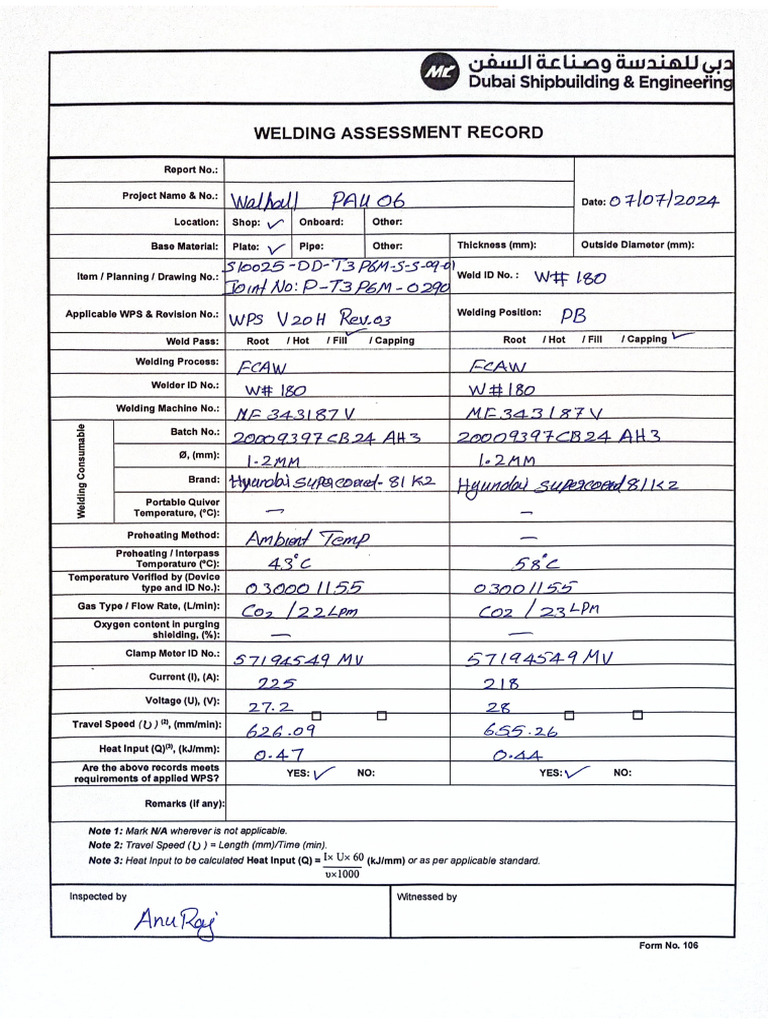 دبي للهندسة وصناعة السفن
MC Dubai Shipbuilding & Engineering
WELDING ASSESSMENT RECORD
Report No.:
Project Name & No.: Walhall PAU 06 Date: 07/07/2024
Location: Shop: ✓ Onboard: Other:
Base Material: Plate: ✓ Pipe: Other: Thickness (mm): Outside Diameter (mm):
Item / Planning / Drawing No.: S10025-DD-T3P6M-S-S-09-01 Weld ID No. : W# 180
Joint No: P-T3P6M-0290
Applicable WPS & Revision No.: WPS V20H Rev.03 Welding Position: PB
Weld Pass: Root / Hot / Fill ✓ / Capping Root / Hot / Fill / Capping ✓
Welding Process: FCAW FCAW
Welder ID No.: W# 180 W# 180
Welding Machine No.: MF 343187V MF 343187V
Welding Consumable
Batch No.: 20009397CB24 AH3 20009397CB24 AH3
Ø, (mm): 1.2MM 1.2MM
Brand: Hyundai Supercored-81 K2 Hyundai Supercored 81K2
Portable Quiver Temperature, (ºC): — —
Preheating Method: Ambient Temp —
Preheating / Interpass Temperature (ºC): 43°C 58°C
Temperature Verified by (Device type and ID No.): 030001155 03001155
Gas Type / Flow Rate, (L/min): CO2 / 22 LPM CO2 / 23 LPM
Oxygen content in purging shielding, (%): — —
Clamp Motor ID No.: 57194549 MV 57194549 MV
Current (I), (A): 225 218
Voltage (U), (V): 27.2 28
Travel Speed (υ) (2), (mm/min): 626.09 655.26
Heat Input (Q)(3), (kJ/mm): 0.47 0.44
Are the above records meets requirements of applied WPS? YES: ✓ NO: YES: ✓ NO:
Remarks (if any):
Note 1: Mark N/A wherever is not applicable.
Note 2: Travel Speed (υ) = Length (mm)/Time (min).
Note 3: Heat Input to be calculated Heat Input (Q) = I× U× 60 / υ×1000 (kJ/mm) or as per applicable standard.
Inspected by Witnessed by
Anu Raj
Form No. 106